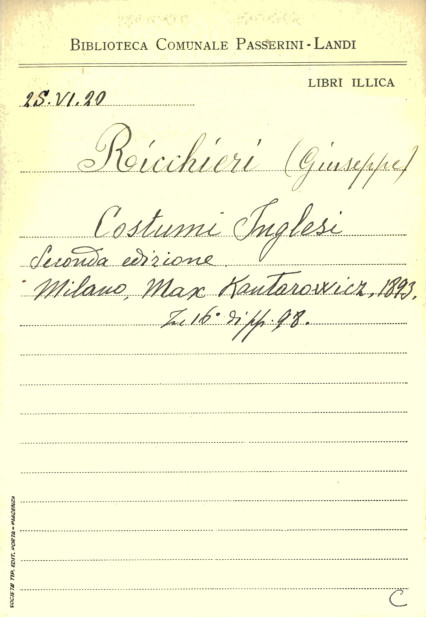 BIBLIOTECA COMUNALE PASSERINI-LANDI
LIBRI ILLICA
2S.VI.20
Ricchieri (Giuseppe)
Costumi Inglesi
Seconda edizione.
Milano, Max Kantorowicz, 1893.
In 16° di pp. 98.
SOCIETÀ TIP. EDIT. PORTA - PIACENZA
C